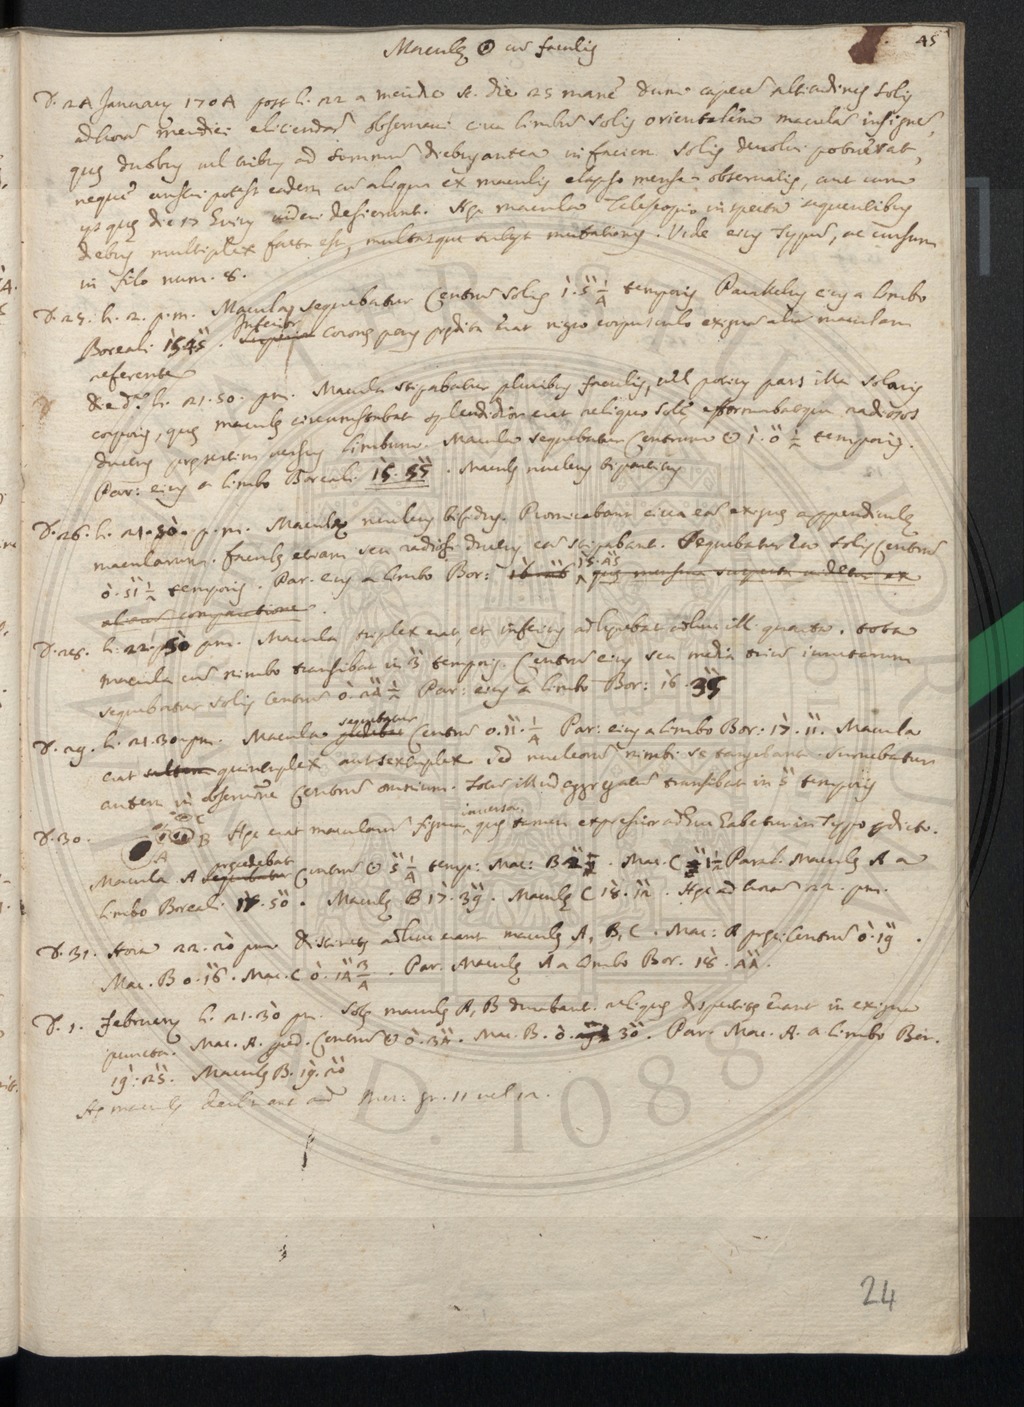 Maculę ☉ cu faculis
45
D. 24 January 1704 post h. 22 a meridie st. die 25 mane dum caperē altitudines Solis
ad horā meridiei eliciendā observavi circa limbū Solis orientalem maculā insignē,
quę duobus vel tribus ad summū diebus antea in faciem Solis devolvi potuerat,
neque censeri potest eadem cū aliqua ex maculis elapso mense observatis, aut cum
ijs quę die 17 huius videri desierunt. Hęc macula Telescopio inspecta sequentibus
diebus multiplex facta est, multasque subijt mutationes. Vide eius Typū, ac cursum
in filo num. 8.
D. 25. h. 2. p.m. Macula sequebatur Centrū Solis 1. 5 1/4 temporis Parallelus eius a limbo
Boreali 15 45. Inferior coronę pars prędita erat nigro corpusculo exiguā aliā maculam
referente
die dᵒ h. 21. 50. pm. Macula stipabatur pluribus faculis, vel potius pars illa Solaris
corporis, quę maculę circumstabat splendidior erat reliquo Sole efformabatque radiosos
ductus pręsertim versus limbum. Macula sequebatur Centrum ☉ 1. 0 1/2 temporis.
Par: eius a limbo Boreali 15. 55. Maculę nucleus bipartitus
D. 26. h. 21. 50. p.m. Maculę nucleus bifidus. Prominebant circa eā exiguę appendiculę
macularum. Faculę etiam seu radiosi ductus eā stipabant. Sequebatur Solis Centrū
0. 51 1/2 temporis. Par. eius a limbo Bor: 16 26 15. 45 quę mensura suspecta videtur ex
aliarū comparatione.
D. 28. h. 22. 50 pm. Macula triplex erat, et inferius adhęrebat adhuc ill. quarta. tota
macula cū nimbo transibat in 3 temporis. Centrū eius seu media triū iunctarum
sequebatur Solis Centrū 0. 24 1/2 Par: eius a limbo Bor: 16. 35
D. 29. h. 21. 30 pm. Macula sequebatur Centrū 0. 11. 1/4 Par: eius a limbo Bor: 17. 11. Macula
erat saltem quintuplex aut sextuplex sed nucleorū nimbi se tangebant. Sumebatur
autem in observōne Centrū omnium. Totū illud aggregatū transibat in 5 temporis
D. 30. A B C Hęc erat macularū figura inversa, quę tamen expressior adhuc habetur in Typo pdicto.
Macula A pręcedebat Centrū ☉ 5 1/4 temp: Mac: B 2. Mac. C 1 1/2 Paral. Maculę A a
limbo Boreali 17. 50. Maculę B 17. 39. Maculę C 18. 12. Hęc ad horā 22. pm.
D. 31. Hora 22. 20 pm. distinctę adhuc erant maculę A, B, C. Mac: A pręc: Centrū 0. 19.
Mac. B 0. 16. Mac. C 0. 14 3/4. Par. Maculę A a limbo Bor. 18. 44.
D. 1. February h. 21. 30 pm. Solę maculę A, B durabant. reliquę dispertitę erant in exigua
puncta. Mac. A. pręd. Centrū ☉ 0. 34. Mac. B. 0. 30. Par. Mac. A. a limbo Bor.
19. 25. Maculę B. 19. 20
Hę maculę declinant ad Mer: gr. 11 vel 12.
24
A.D. 1088